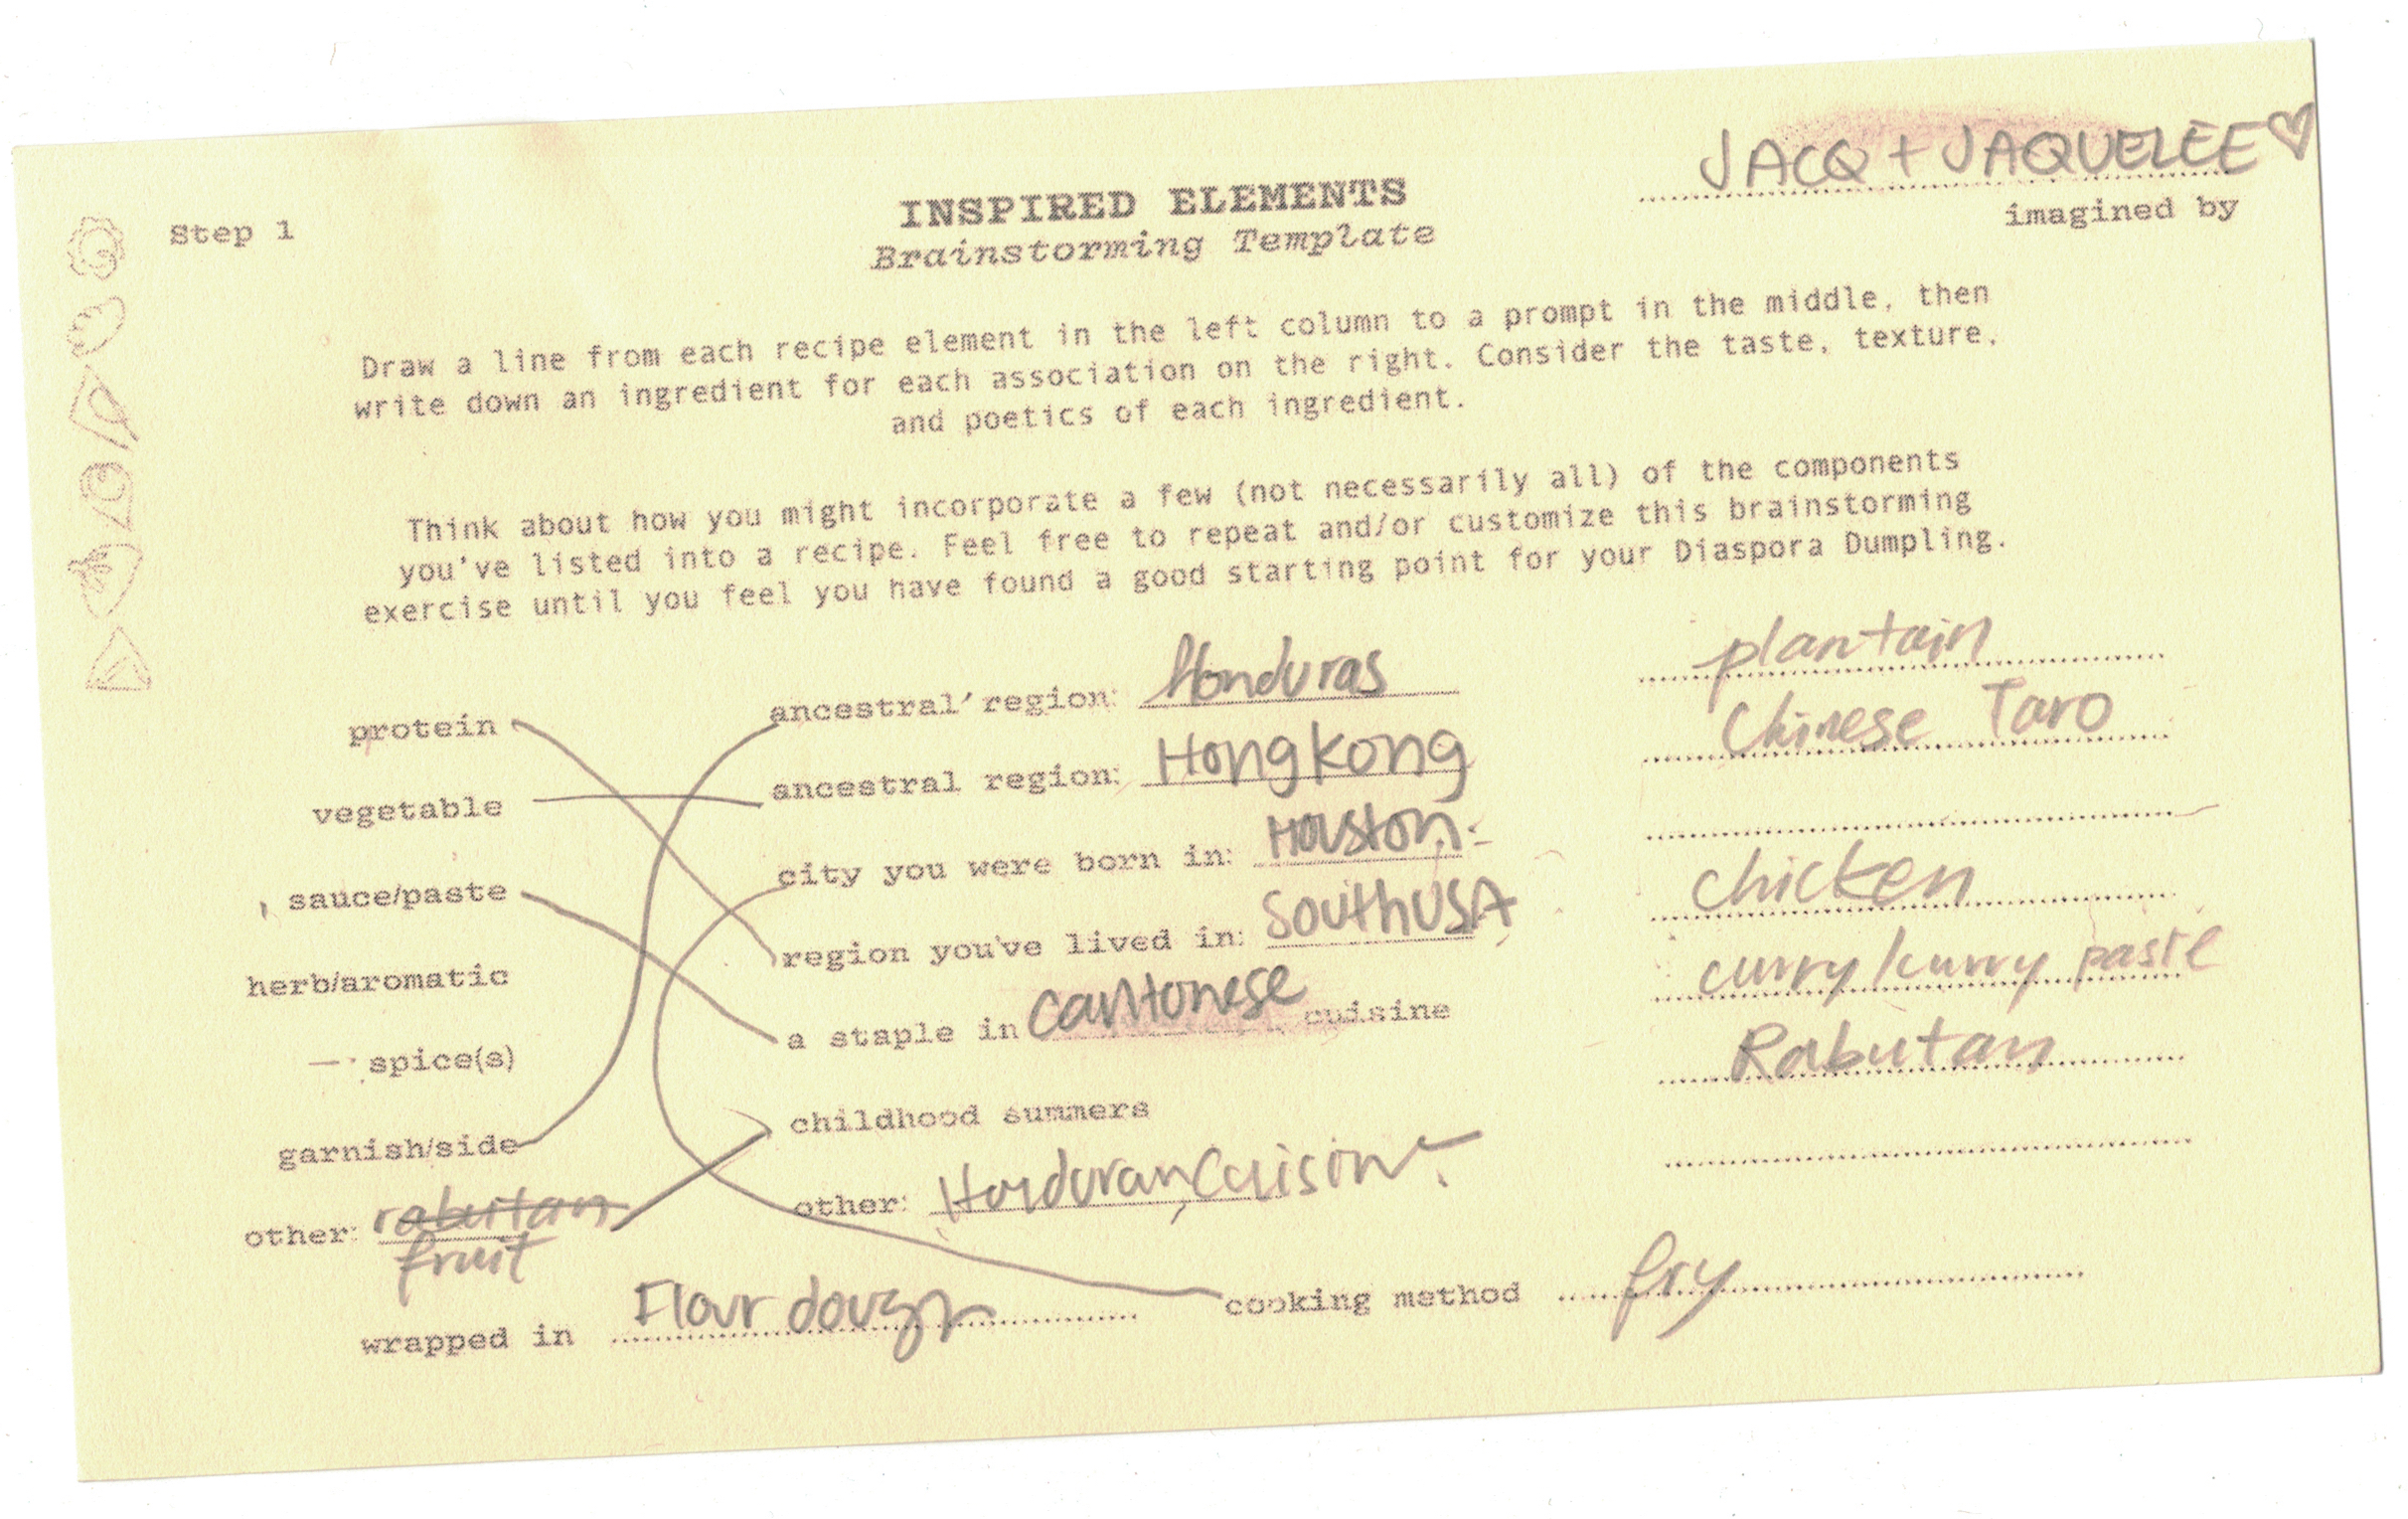 JACQ + JAQUELEE ♡
imagined by
Step 1
INSPIRED ELEMENTS
Brainstorming Template
Draw a line from each recipe element in the left column to a prompt in the middle, then
write down an ingredient for each association on the right. Consider the taste, texture,
and poetics of each ingredient.
Think about how you might incorporate a few (not necessarily all) of the components
you've listed into a recipe. Feel free to repeat and/or customize this brainstorming
exercise until you feel you have found a good starting point for your Diaspora Dumpling.
protein
vegetable
sauce/paste
herb/aromatic
spice(s)
garnish/side
other: rabutan
fruit
ancestral region: Honduras
ancestral region: Hong Kong
city you were born in: Houston
region you've lived in: South USA
a staple in Cantonese cuisine
childhood summers
other: Honduran Cuisine
plantain
Chinese Taro
chicken
curry/curry paste
Rabutan
wrapped in Flour dough
cooking method fry